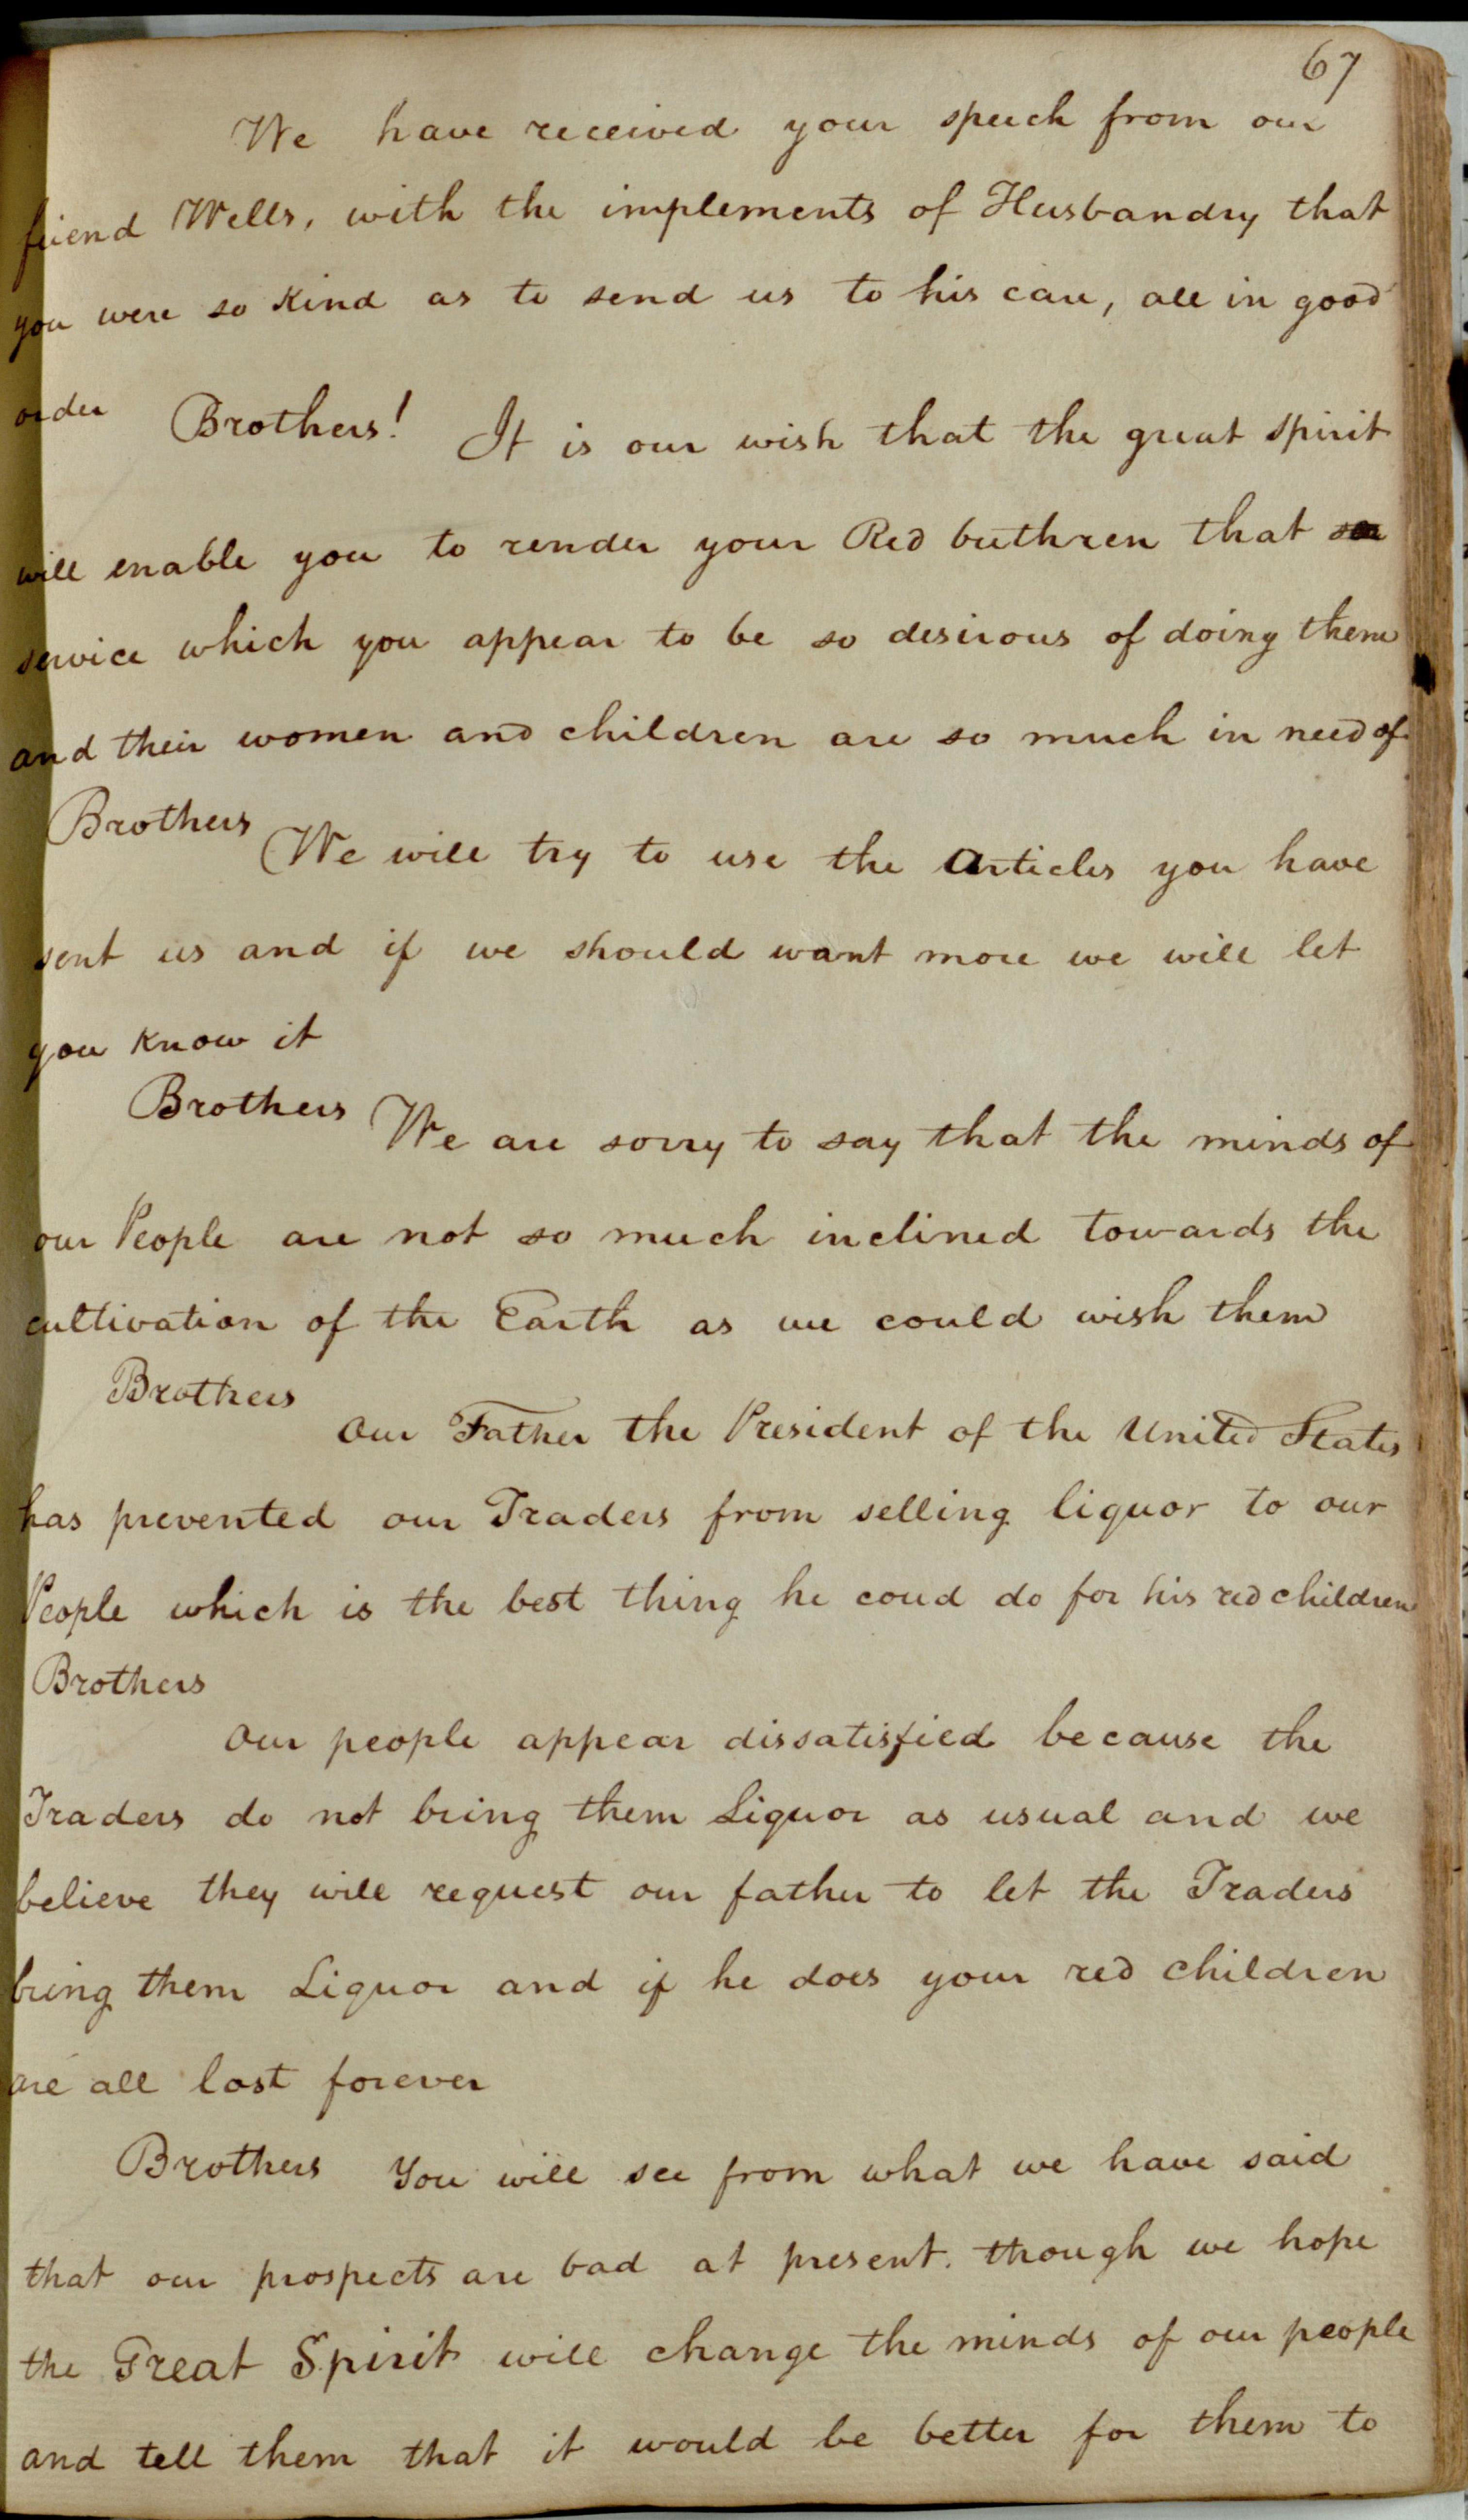 67
We have received your speech from our
friend Wells, with the implements of Husbandry that
you were so Kind as to send us to his care, all in good
order
Brothers! It is our wish that the great spirit
will enable you to render your Red brethren that
service which you appear to be so desirous of doing them
and their women and children are so much in need of
Brothers We will try to use the Articles you have
sent us and if we should want more we will let
you Know it
Brothers We are sorry to say that the minds of
our People are not so much inclined towards the
cultivation of the Earth as we could wish them
Brothers
Our Father the President of the United States
has prevented our Traders from selling liquor to our
People which is the best thing he coud do for his red children
Brothers
Our people appear dissatisfied because the
Traders do not bring them Liquor as usual and we
believe they will request our father to let the Traders
bring them Liquor and if he does your red children
are all lost forever
Brothers You will see from what we have said
that our prospects are bad at present. though we hope
the Great Spirit will change the minds of our people
and tell them that it would be better for them to